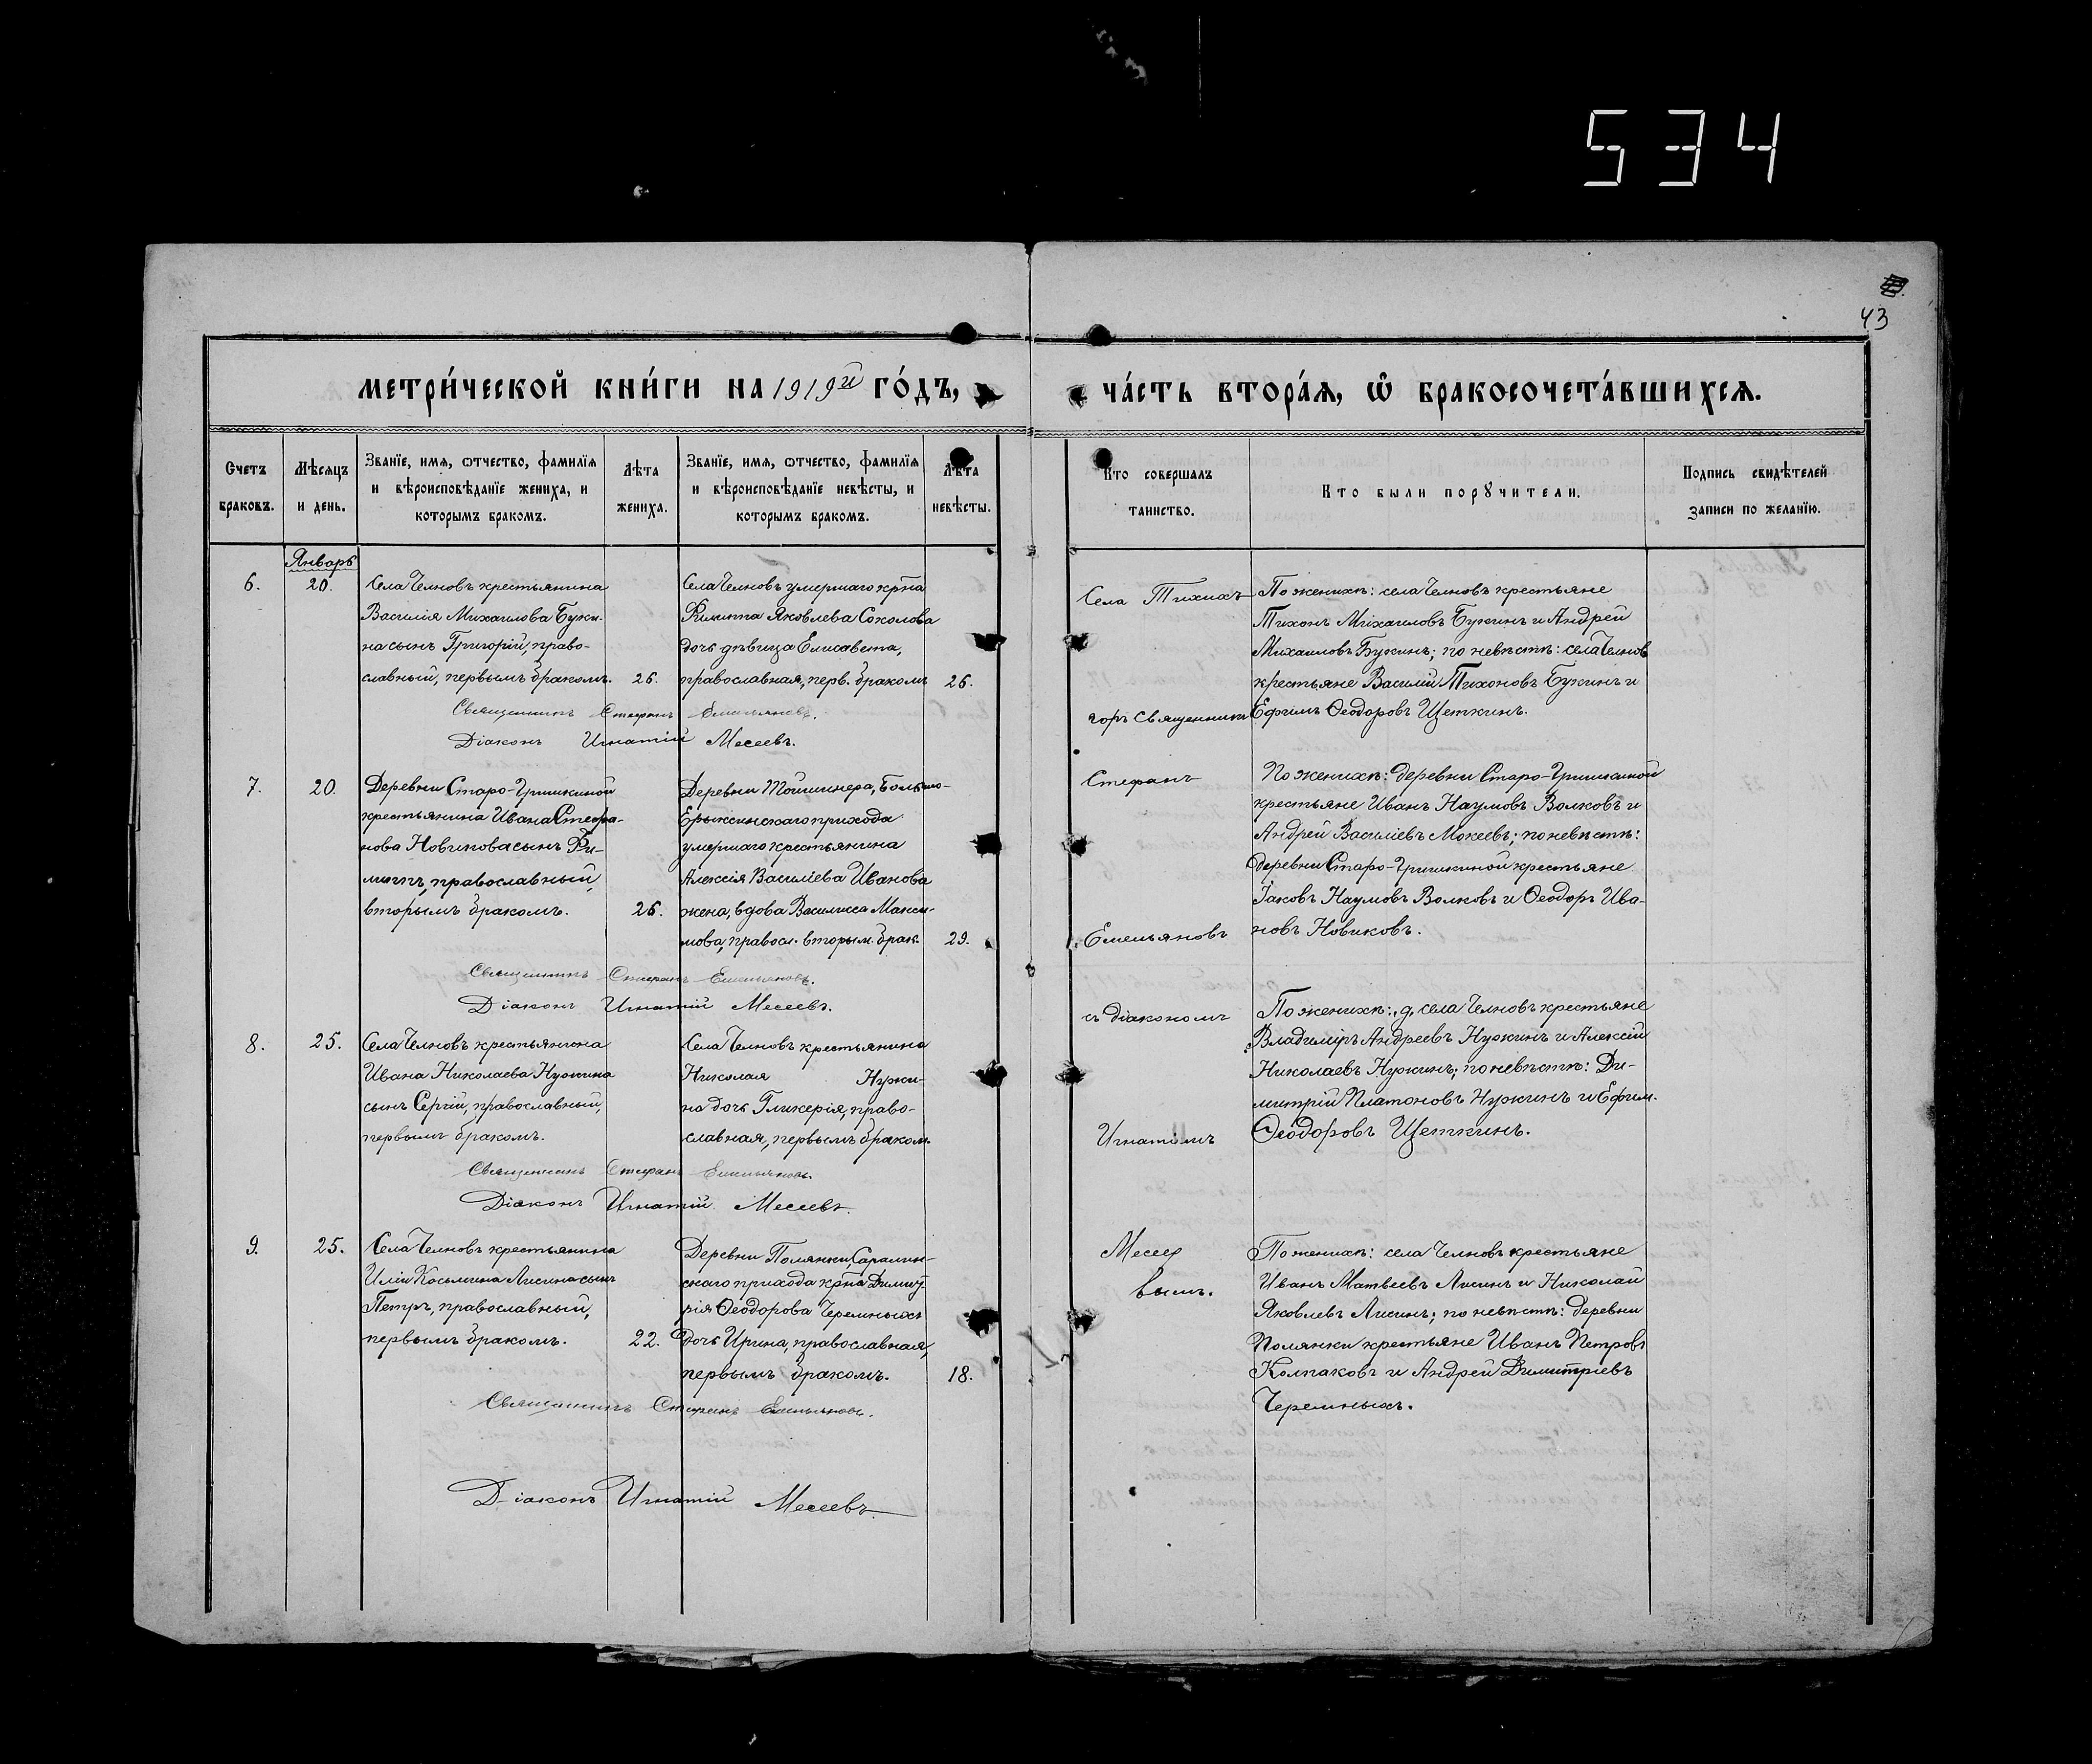 534
43
МЕТРИ́ЧЕСКОЙ КНИ́ГИ НА 1919й ГО́ДЪ,
ЧА́СТЬ ВТОРА́Я, Ѽ БРАКОСОЧЕТА́ВШИХСЯ.
Счетъ браковъ.
Мѣсяцъ и день.
Званїе, имя, ѿтчество, фамилїя
и вѣроисповѣданїе жениха, и
которымъ бракомъ.
Лѣта жениха.
Званїе, имя, ѿтчество, фамилїя
и вѣроисповѣданїе невѣсты, и
которымъ бракомъ.
Лѣта невѣсты.
Кто совершалъ
таинство.
Кто были порꙋчители.
Подпись свидѣтелей
записи по желанїю.
Январь
6.
20.
Села Челновъ крестьянина
Василія Михаилова Бужи-
на сынъ Григорій, право-
славный, первымъ бракомъ.
26.
Села Челновъ умершаго кр-на
Филиппа Яковлева Соколова
дочь дѣвица Елисавета,
православная, перв. бракомъ
26.
Священникъ Стефанъ Емельяновъ.
Діаконъ Игнатій Месеевъ.
7.
20.
Деревни Старо-Гришкиной
крестьянина Ивана Стефа-
нова Новикова сынъ Фи-
липпъ, православный,
вторымъ бракомъ.
26.
Деревни Тойшинера, Больше-
Ерыксинскаго прихода
умершаго крестьянина
Алексія Василіева Иванова
жена, вдова Василисса Макси-
мова, правосл. вторым. брак.
29.
Священникъ Стефанъ Емельяновъ.
Діаконъ Игнатій Месеевъ.
8.
25.
Села Челновъ крестьянина
Ивана Николаева Нужина
сынъ Сергій, православный,
первымъ бракомъ.
Села Челновъ крестьянина
Николая Нужи-
на дочь Гликерія, право-
славная, первымъ браком.
Священникъ Стефанъ Емельяновъ.
Діаконъ Игнатій Месеевъ.
9.
25.
Села Челновъ крестьянина
Иліи Косьмина Лисина сынъ
Петръ, православный,
первымъ бракомъ.
22.
Деревни Полянки, Саралин-
скаго прихода кр-на Димит-
рія Ѳеодорова Черемныхъ
дочь Ирина, православная,
первымъ бракомъ.
18.
Священникъ Стефанъ Емельяновъ.
Діаконъ Игнатій Месеевъ.
Села Тихихъ
горъ священникъ
Стефанъ
Емельяновъ
съ діакономъ
Игнатіемъ
Месее
вымъ.
По женихѣ: села Челновъ крестьяне
Тихонъ Михаиловъ Бужинъ и Андрей
Михаиловъ Бужинъ; по невѣстѣ: села Челновъ
крестьяне Василій Тихоновъ Бужинъ и
Ефимъ Ѳеодоровъ Щеткинъ.
По женихѣ: деревни Старо-Гришкиной
крестьяне Иванъ Наумовъ Волковъ и
Андрей Василіевъ Мокеевъ; по невѣстѣ:
деревни Старо-Гришкиной крестьяне
Іаковъ Наумовъ Волковъ и Ѳеодоръ Ива-
новъ Новиковъ.
По женихѣ: села Челновъ крестьяне
Владиміръ Андреевъ Нужинъ и Алексій
Николаевъ Нужинъ; по невѣстѣ: Ди-
митрій Платоновъ Нужинъ и Ефим.
Ѳеодоровъ Щеткинъ.
По женихѣ: села Челновъ крестьяне
Иванъ Матвеевъ Лисинъ и Николай
Яковлевъ Лисинъ; по невѣстѣ: деревни
Полянки крестьяне Иванъ Петровъ
Колпаковъ и Андрей Димитріевъ
Черемныхъ.